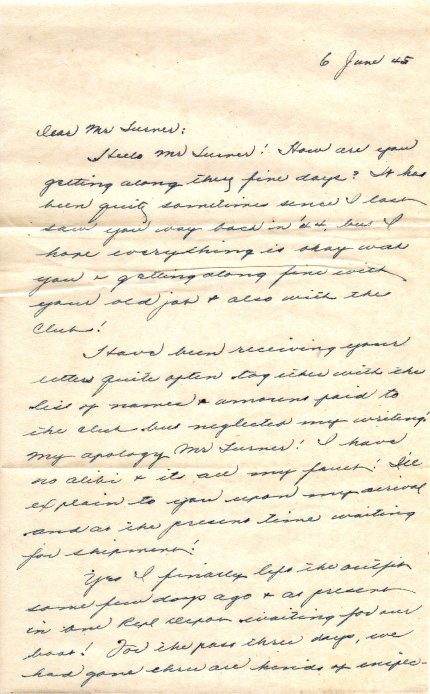 6 June 45
Dear Mr Turner:
Hello Mr Turner! How are you
getting along these fine days? It has
been quite sometimes since I last
saw you way back in '44 but I
hope everything is okay with
you & getting along fine with
your old job & also with the
Club!
I have been receiving your
letters quite often together with the
list of names & amount paid to
the club but neglected my writing!
My apology Mr Turner! I have
no alibi & its all my fault! I'll
explain to you upon my arrival
and at the present time waiting
for shipment!
Yes I finally left the outfit
some few days ago & at present
in one Repl Depot waiting for our
boat! For the pass three days, we
had gone thru all kinds of inspec-